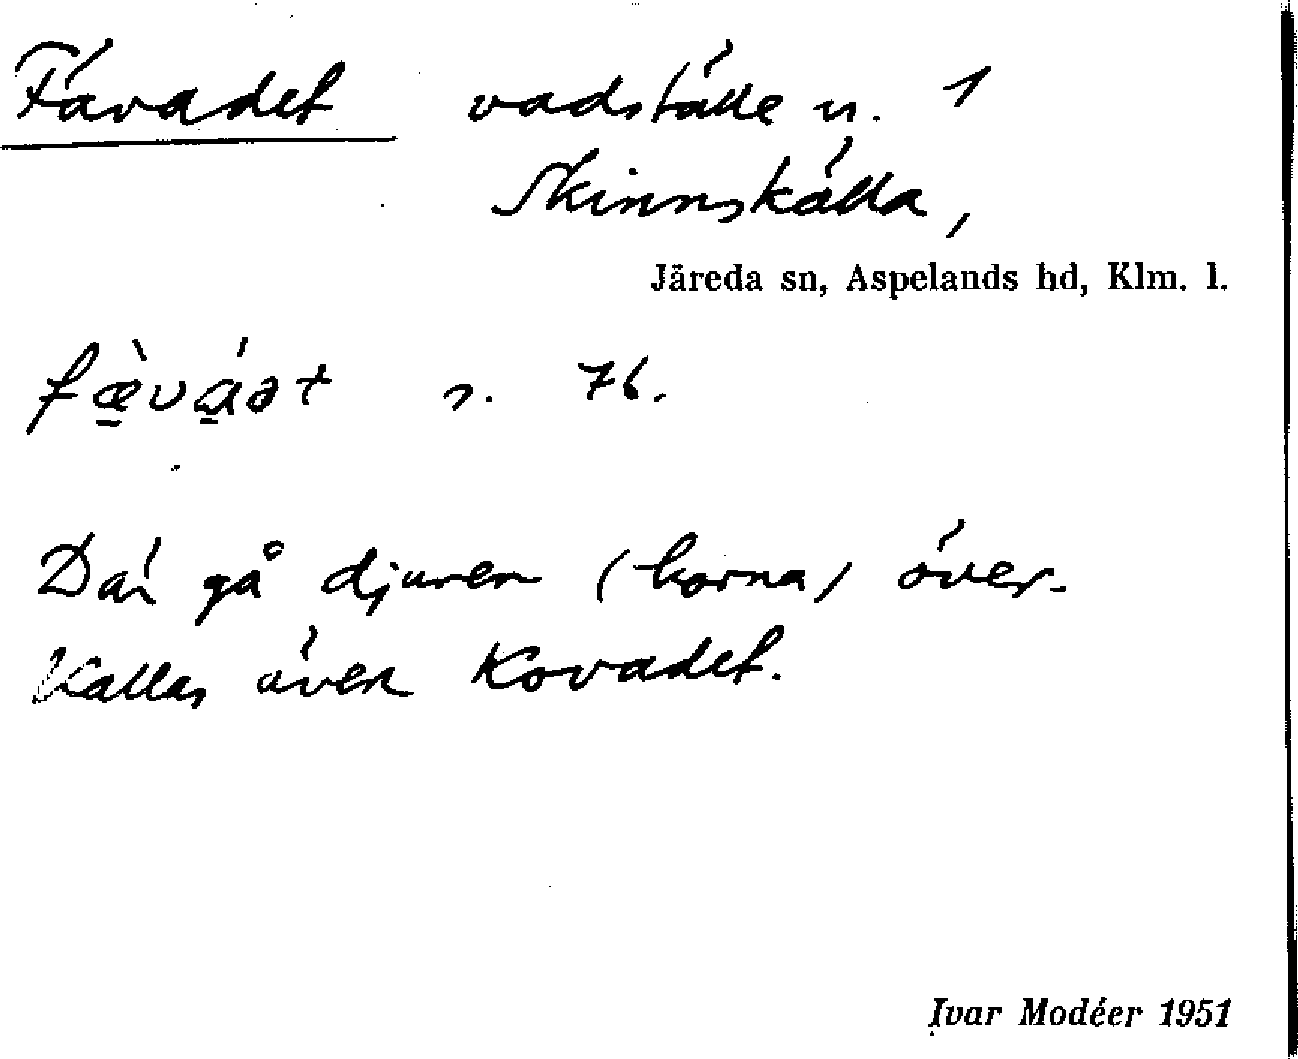 Fävadet vadställe n. 1
Skinnskälla,
Järeda sn, Aspelands hd, Klm. l.
fæ̠̀vá̠ət n. 76.
Där gå djuren (korna) över.
Kallas även Kovadet.
Ivar Modéer 1951